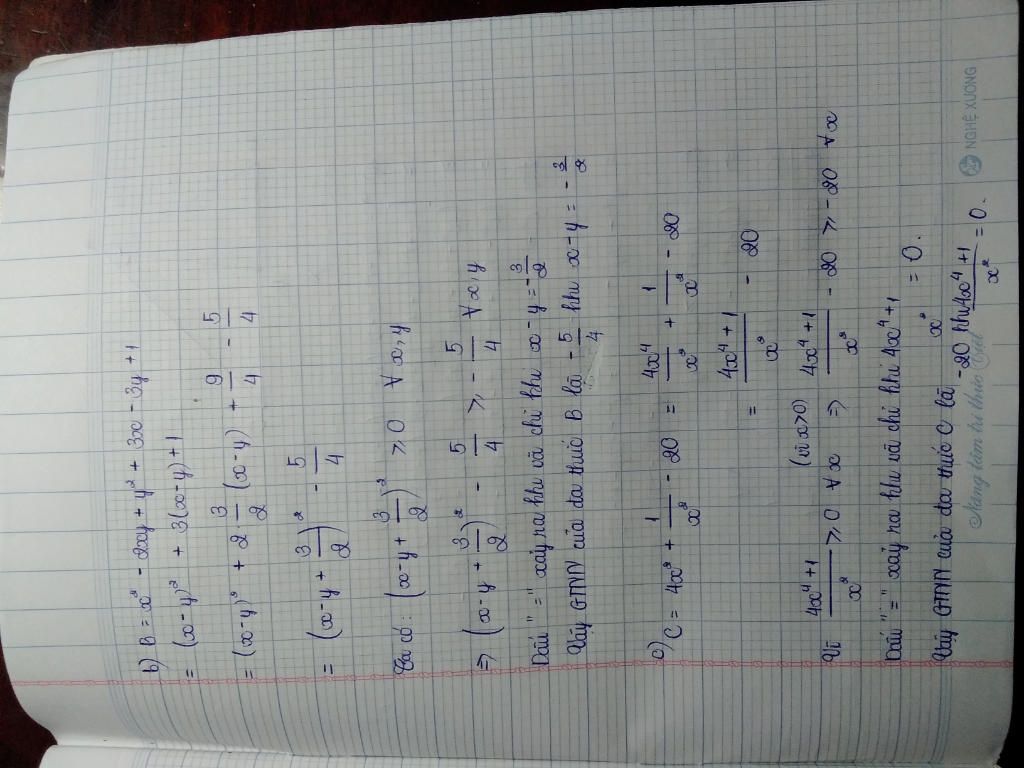 b) B = x² - 2xy + y² + 3x - 3y + 1
= (x-y)² + 3(x-y) + 1
= (x-y)² + 2·3/2 (x-y) + 9/4 - 5/4
= (x-y + 3/2)² - 5/4
Ta có: (x-y + 3/2)² ≥ 0 ∀ x,y
=> (x-y + 3/2)² - 5/4 ≥ - 5/4 ∀ x,y
Dấu "=" xảy ra khi và chỉ khi x-y = -3/2
Vậy GTNN của đa thức B là - 5/4 khi x-y = - 3/2
c) C = 4x² + 1/x² - 20 = 4x⁴/x² + 1/x² - 20
= (4x⁴+1)/x² - 20
Vì (4x⁴+1)/x² ≥ 0 ∀ x (với x>0) => (4x⁴+1)/x² - 20 ≥ -20 ∀ x
Dấu "=" xảy ra khi và chỉ khi (4x⁴+1)/x² = 0.
Vậy GTNN của đa thức C là -20 khi (4x⁴+1)/x² = 0.
Nâng tầm tri thức Việt
NGHỆ XUONG